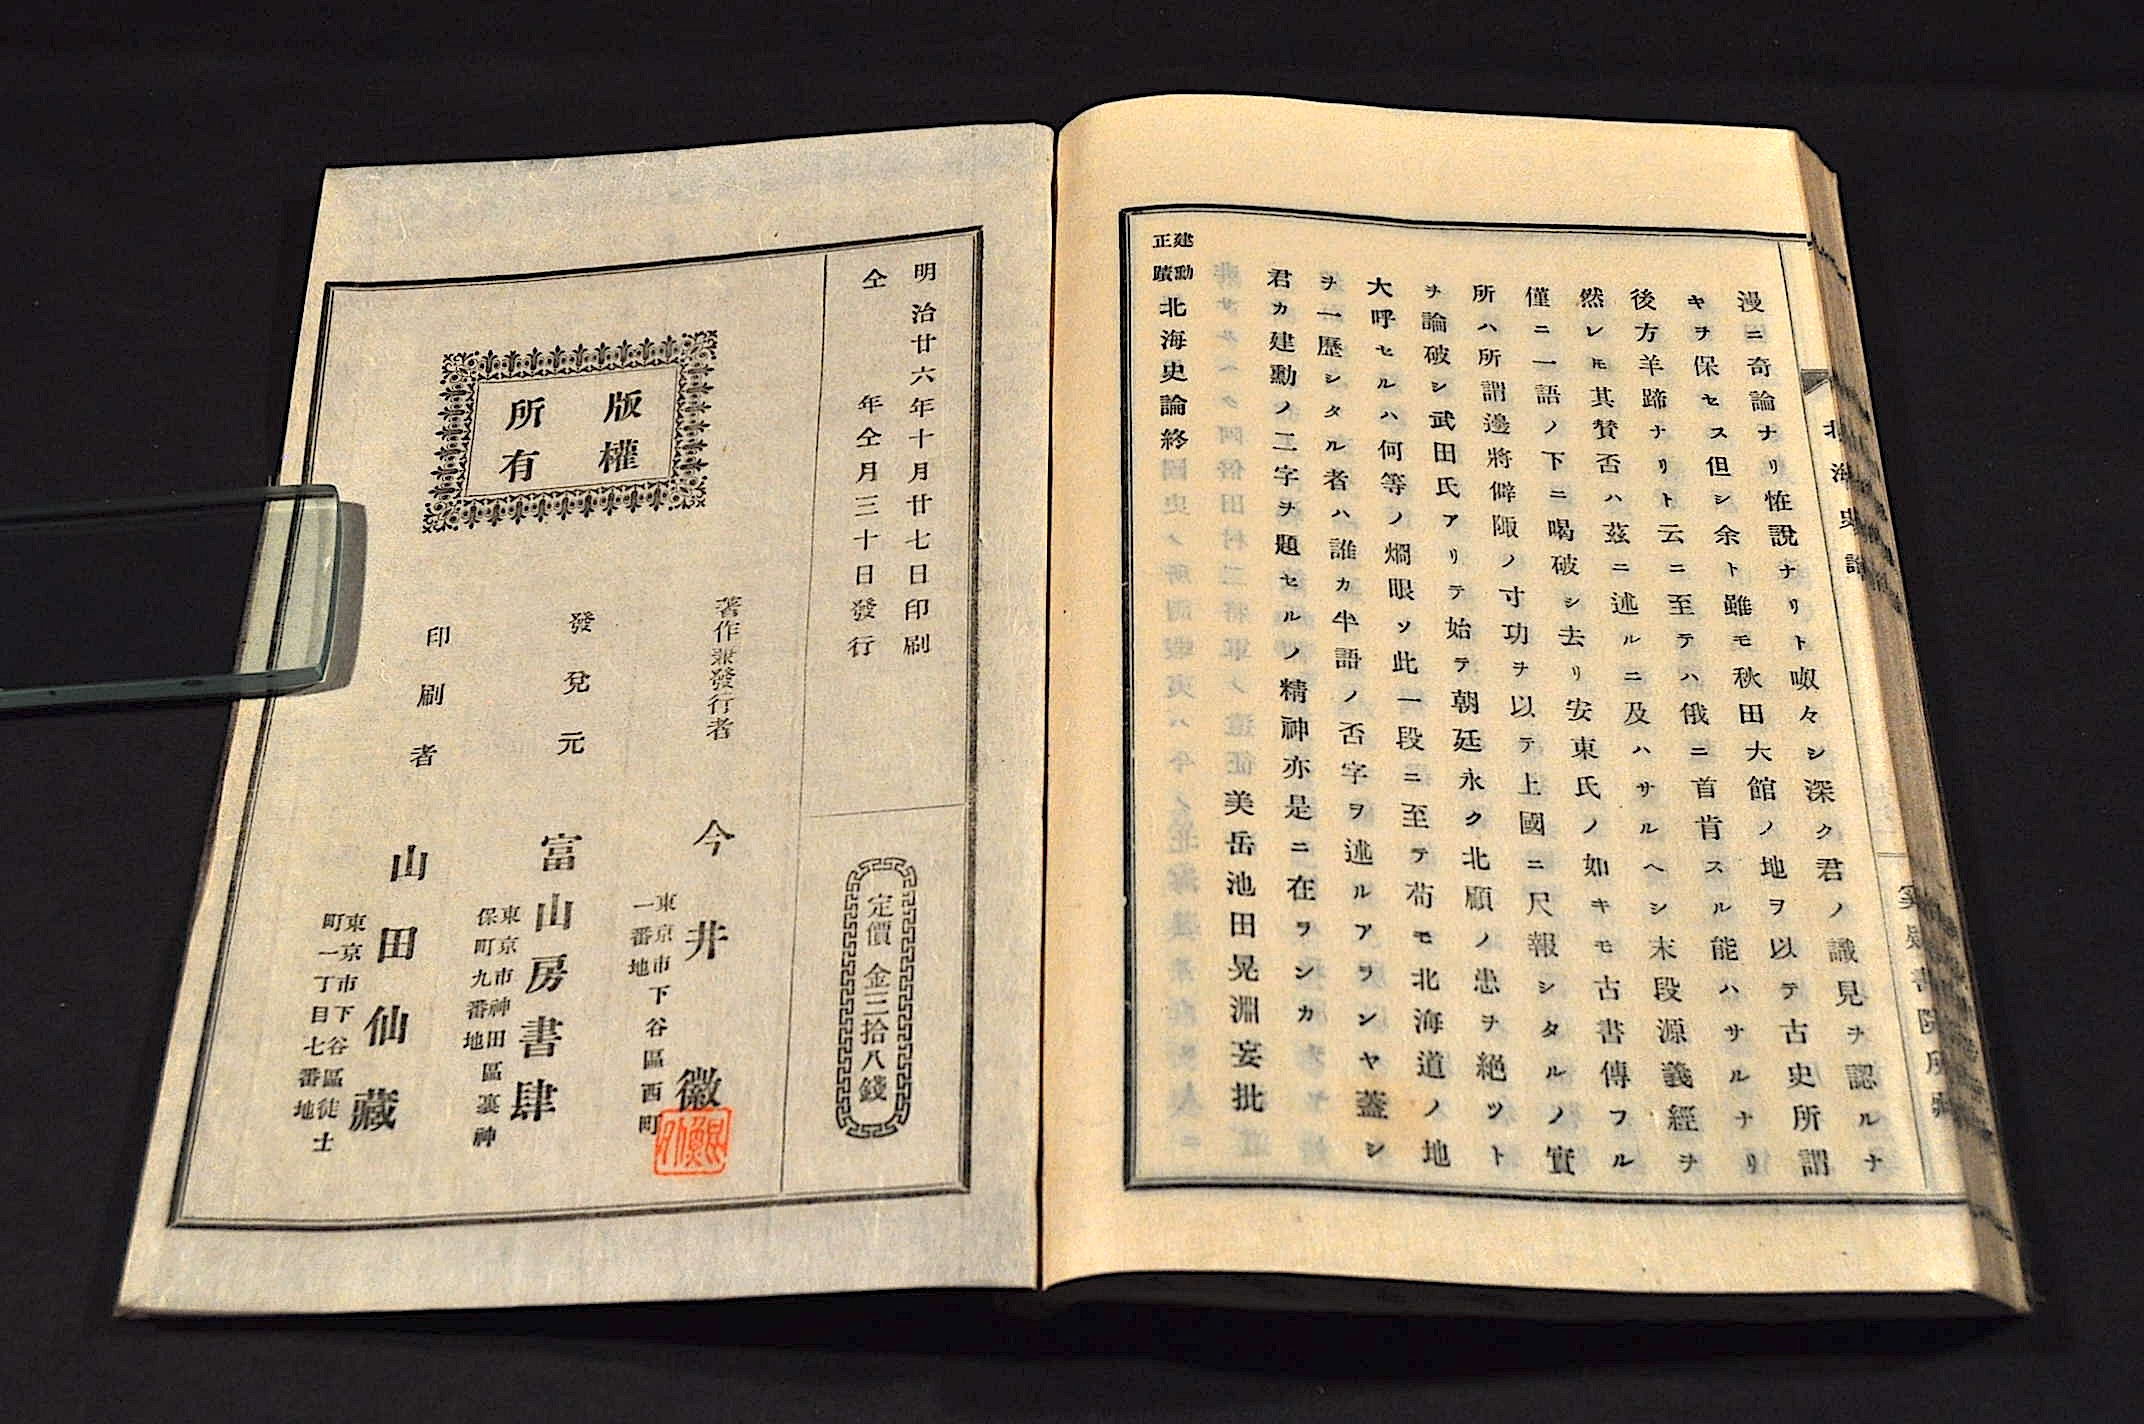 漫ニ奇論ナリ恠說ナリト呶々シ深ク君ノ識見ヲ認ルナ
キヲ保セス但シ余ト雖モ秋田大館ノ地ヲ以テ古史所謂
後方羊蹄ナリト云ニ至テハ俄ニ首肯スル能ハサルナリ
然レ𪜈其賛否ハ茲ニ述ルニ及ハサルヘシ末段源義經ヲ
僅ニ一語ノ下ニ喝破シ去リ安東氏ノ如キモ古書傳フル
所ハ所謂邊將僻陬ノ寸功ヲ以テ上國ニ尺報シタルノ實
ヲ論破シ武田氏アリテ始テ朝廷永ク北顧ノ患ヲ絶ツト
大呼セルハ何等ノ烱眼ソ此一段ニ至テ苟モ北海道ノ地
ヲ一歷シタル者ハ誰カ半語ノ否字ヲ述ルアランヤ蓋シ
君カ建勳ノ二字ヲ題セルノ精神亦是ニ在ヲンカ
美岳池田晃淵妄批
建勳正蹟北海史論終
北海史論
明治廿六年十月廿七日印刷
仝年仝月三十日發行
定價金三拾八錢
版權
所有
著作兼發行者
今井徽
東京市下谷區西町
一番地
發兌元
富山房書肆
東京市神田區裏神
保町九番地
印刷者
山田仙藏
東京市下谷區徒士
町一丁目七番地